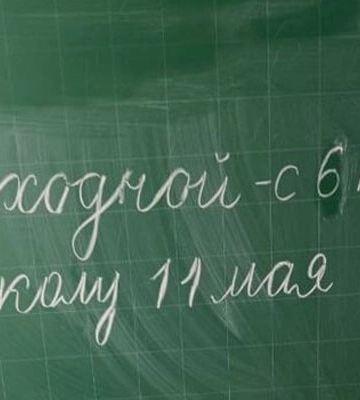 ходной - с 6
колу 11 мая